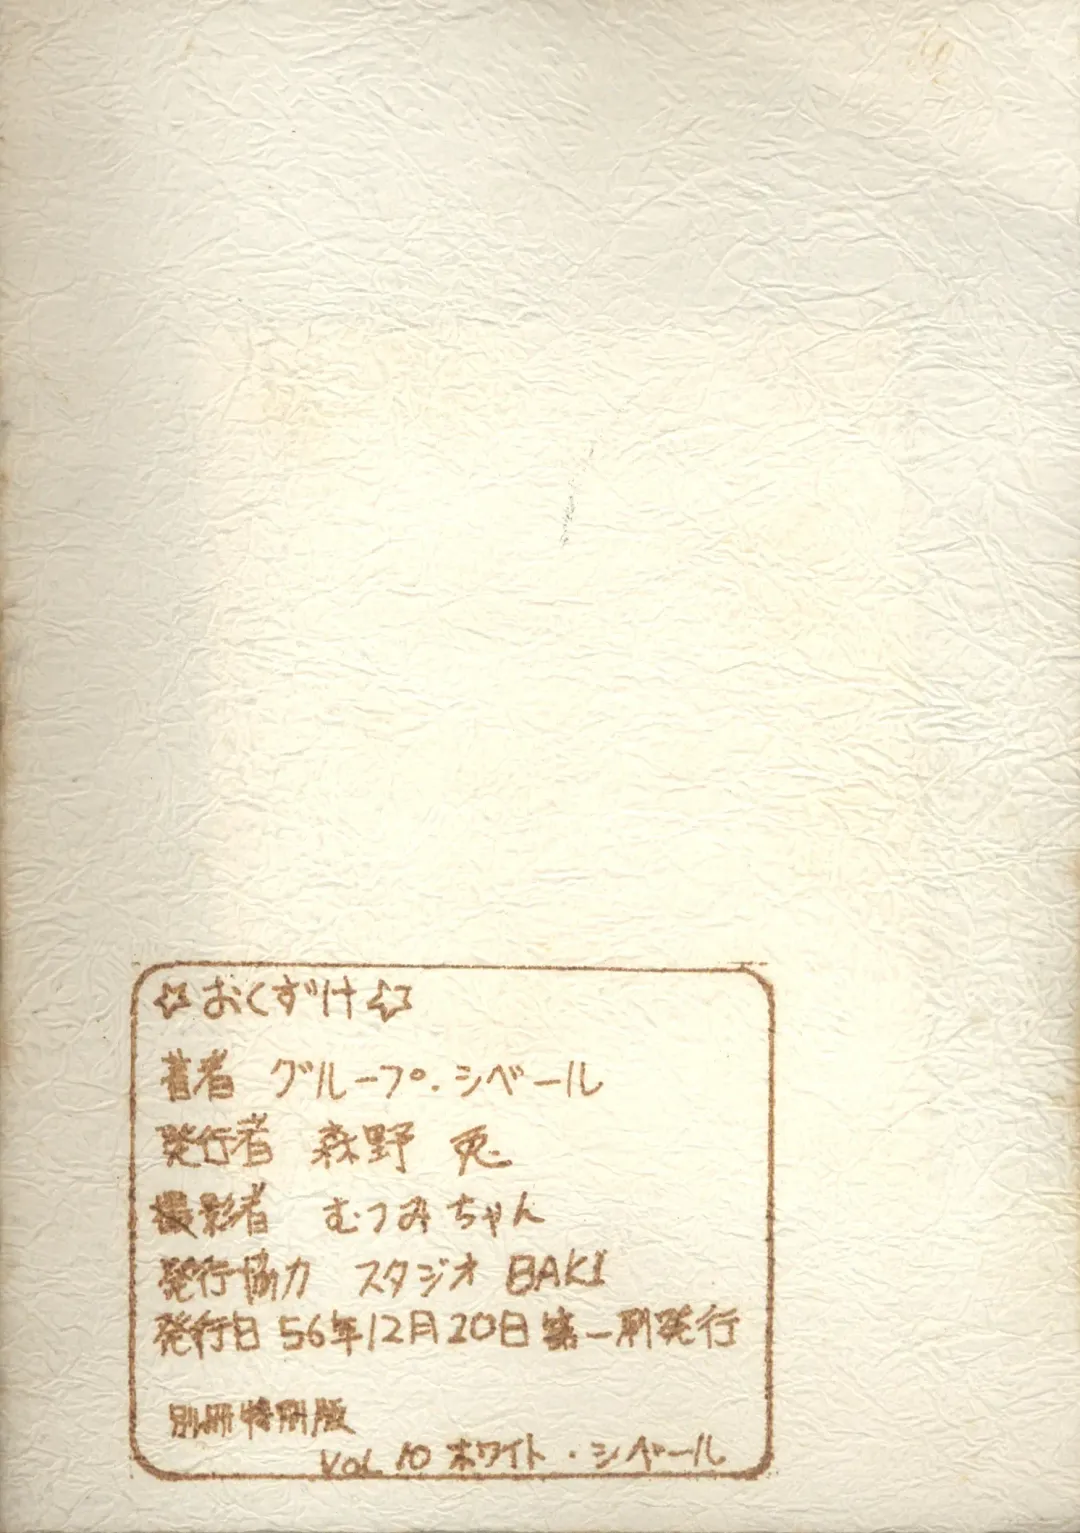 ☆おくずけ☆
著者 グループ・シベール
発行者 森野 兎
撮影者 むつみちゃん
発行協力 スタジオ BAKI
発行日 56年12月20日 第一刷発行
別冊特別版
VOL 10 ホワイト・シベール